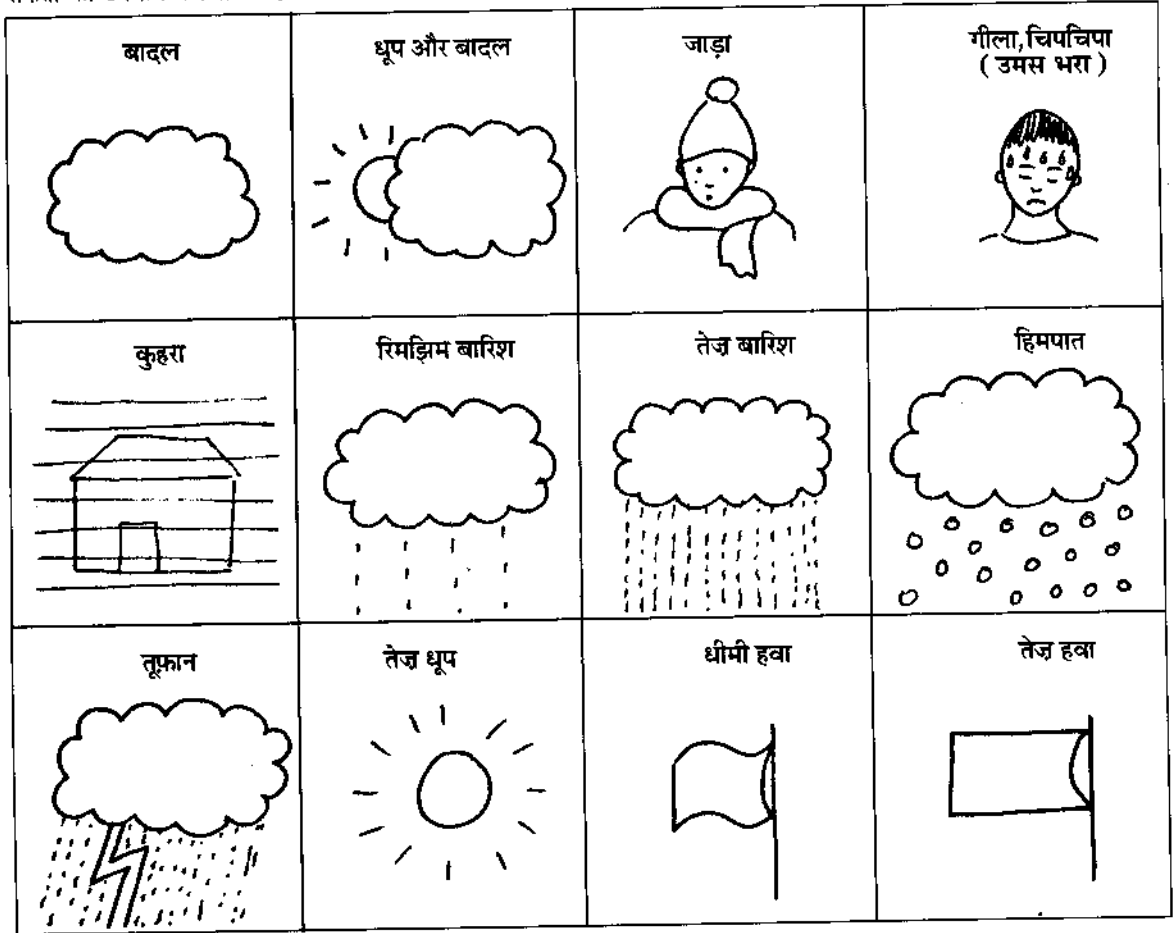 बादल
धूप और बादल
जाड़ा
गीला,चिपचिपा
( उमस भरा )
कुहरा
रिमझिम बारिश
तेज़ बारिश
हिमपात
तूफ़ान
तेज़ धूप
धीमी हवा
तेज़ हवा